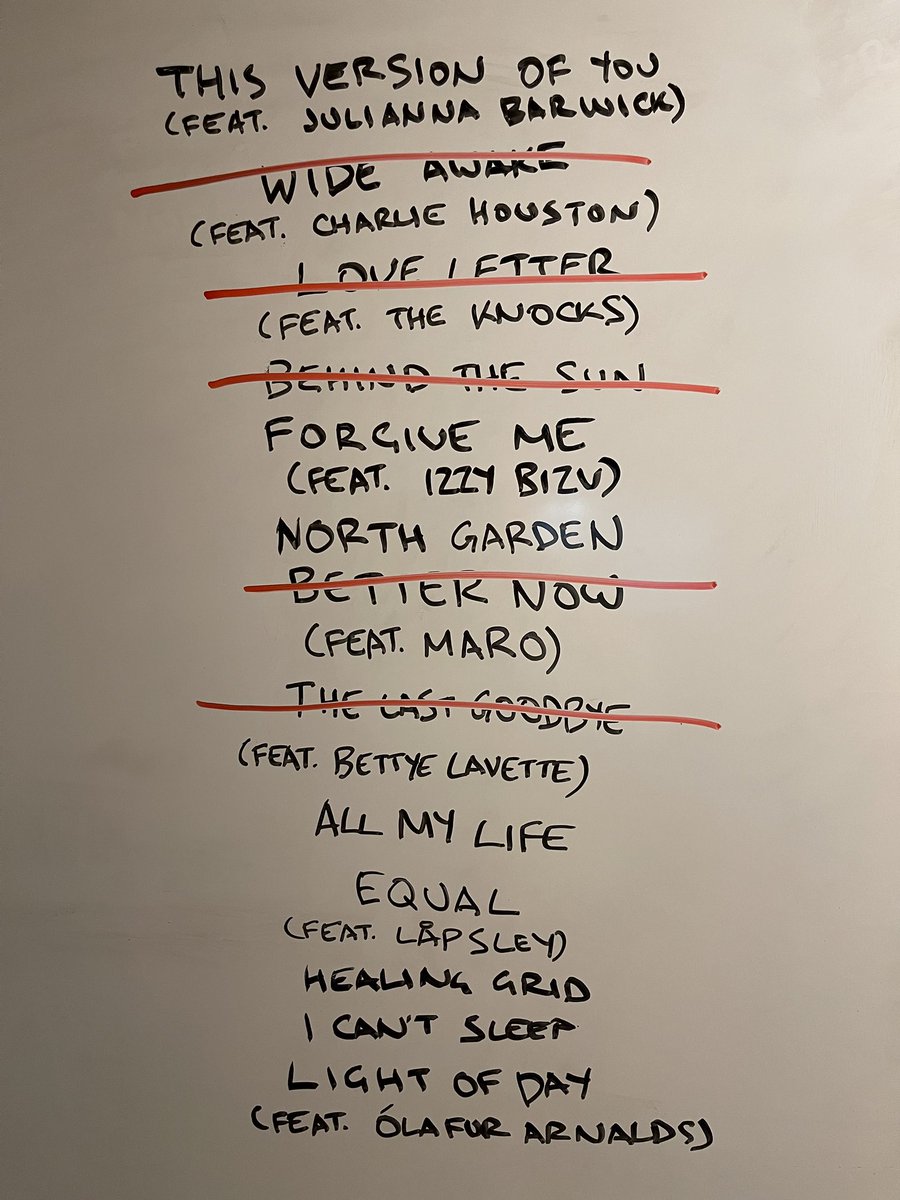 THIS VERSION OF YOU
(FEAT. JULIANNA BARWICK)
WIDE AWAKE
(FEAT. CHARLIE HOUSTON)
LOVE LETTER
(FEAT. THE KNOCKS)
BEHIND THE SUN
FORGIVE ME
(FEAT. IZZY BIZU)
NORTH GARDEN
BETTER NOW
(FEAT. MARO)
THE LAST GOODBYE
(FEAT. BETTYE LAVETTE)
ALL MY LIFE
EQUAL
(FEAT. LÅPSLEY)
HEALING GRID
I CAN'T SLEEP
LIGHT OF DAY
(FEAT. ÓLAFUR ARNALDS)